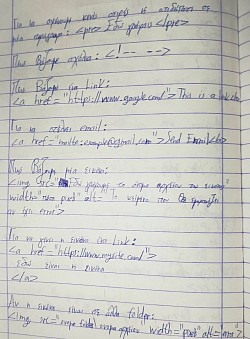 Για να γράψουμε κενά
μία παράγραφο: <pre> Εδώ γράφουμε </pre>
Πως βάζουμε σχόλια: <!-- -->
Πως βάζουμε ένα Link:
<a href="https://www.google.com/"> This is a link</a>
Για να στείλει email:
<a href="mailto:example@gmail.com"> Send Email</a>
Πως βάζουμε μία εικόνα:
<img src="Εδώ γράφουμε το όνομα αρχείου της εικόνας"
width="πόσα pixel" alt="Το κείμενο που θα εμφανίζει
αν έχει error">
Για να γίνει η εικόνα ένα Link:
<a href="https://www.mysite.com/">
Εδώ είναι η εικόνα
</a>
Αν η εικόνα είναι σε άλλο folder:
<img src="όνομα folder/όνομα αρχείου" width="pixel" alt="error">